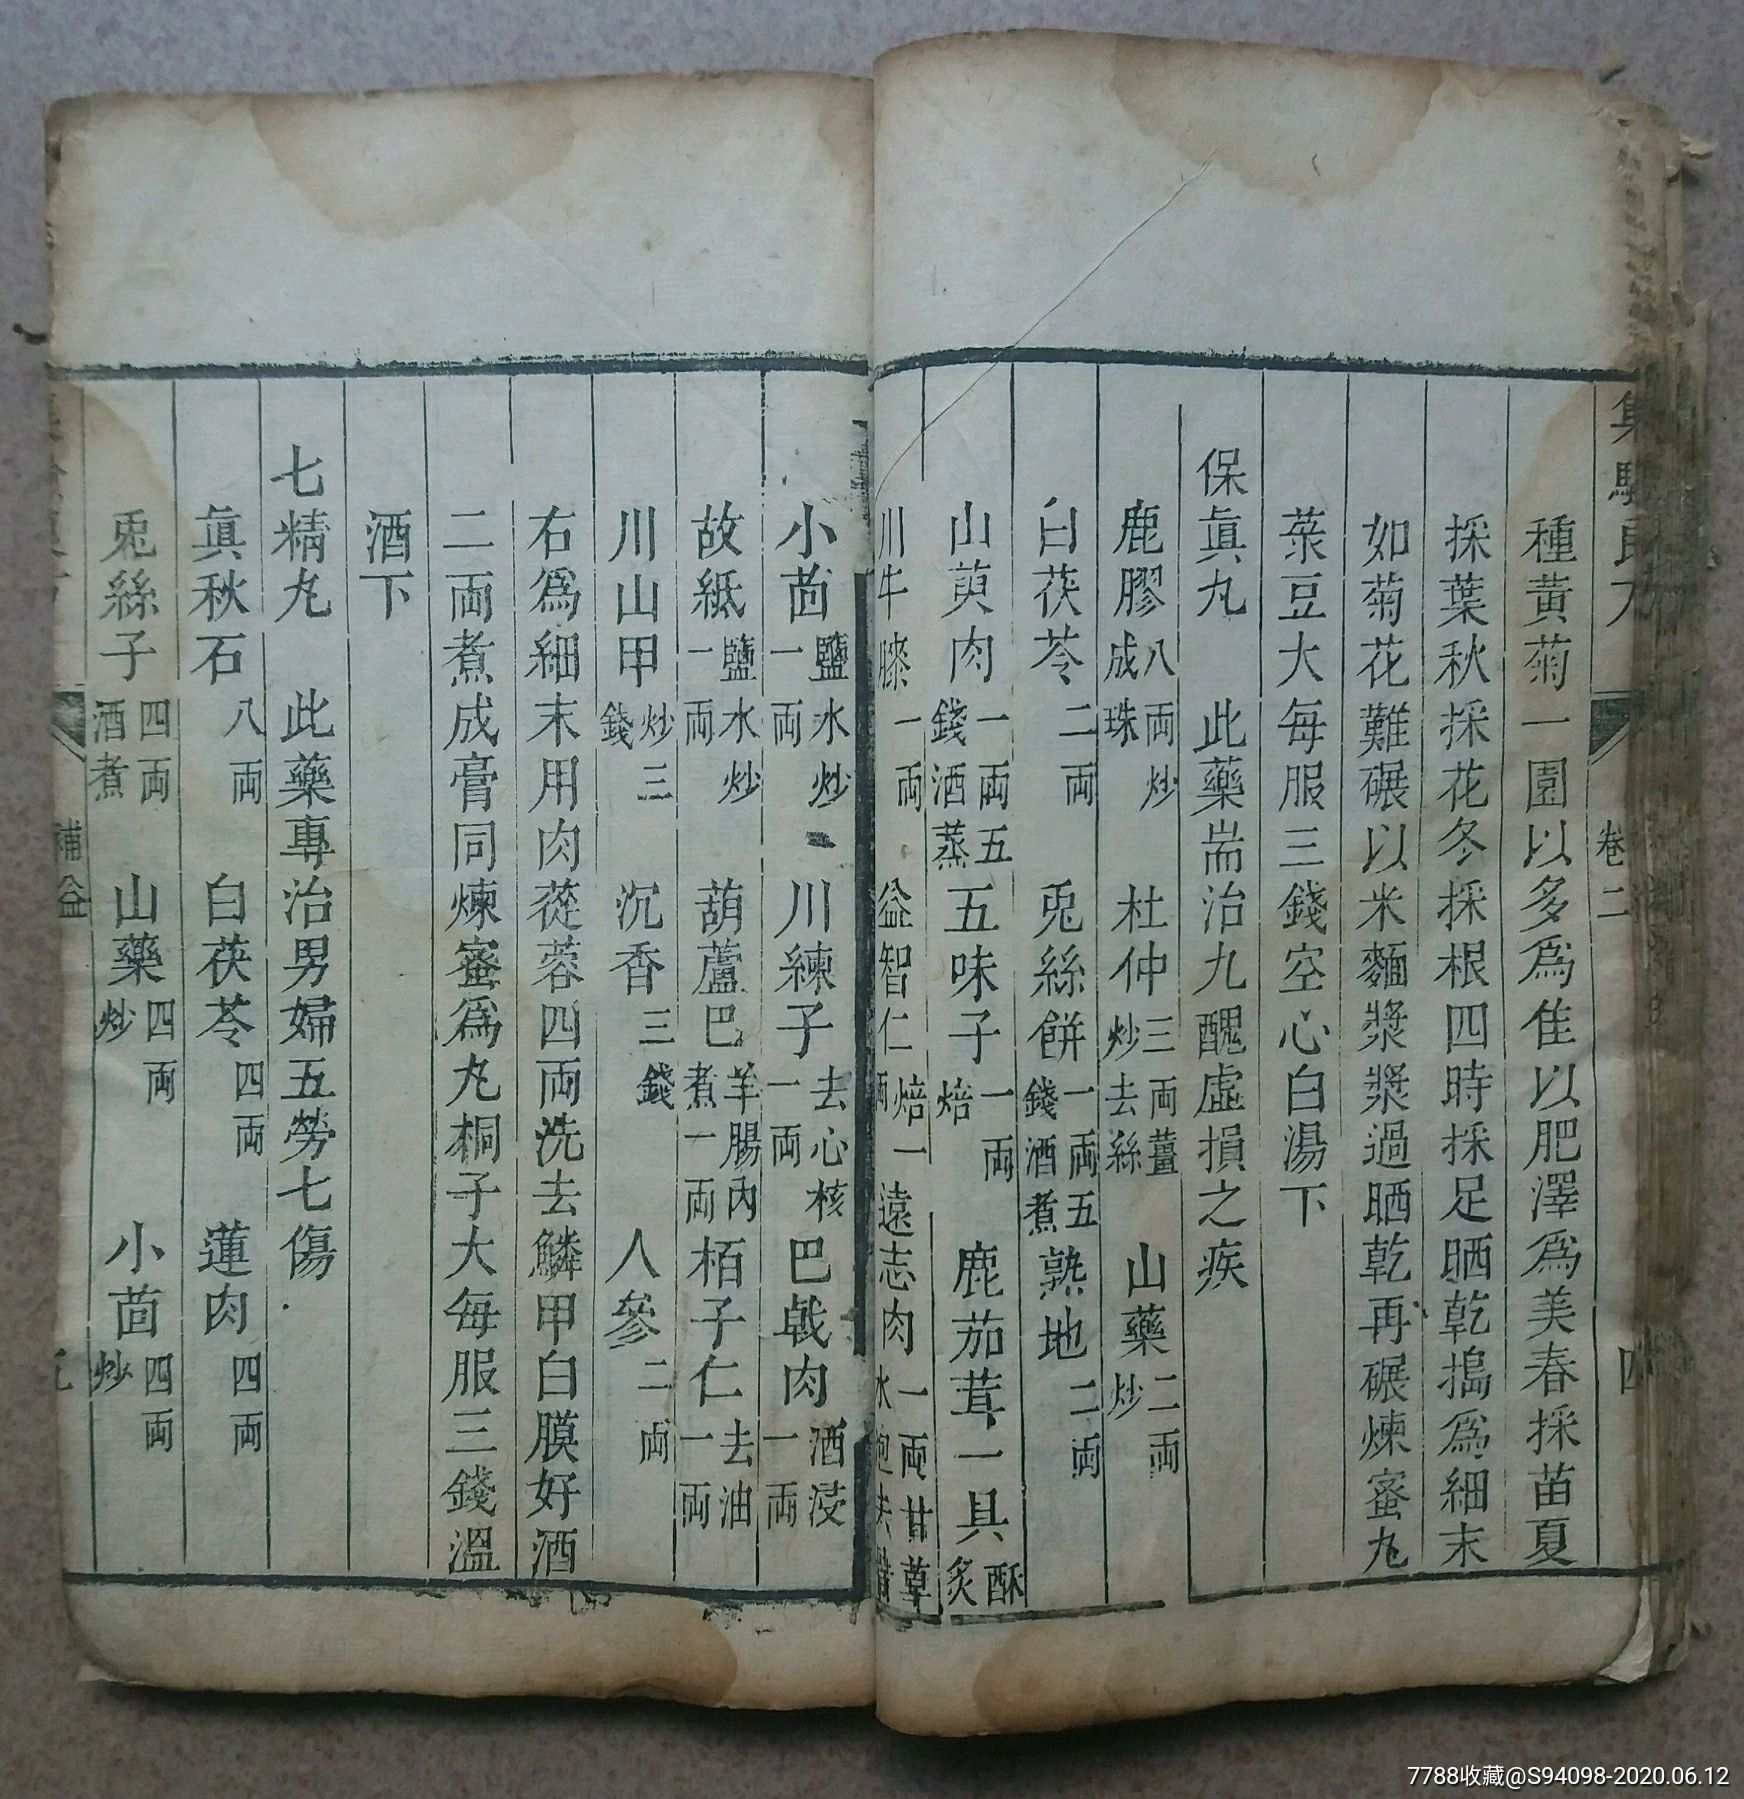 集驗良方 卷二 四
種黃菊一園以多為隹以肥澤為美春採苗夏
採葉秋採花冬採根四時採足晒乾搗為細末
如菊花難碾以米麵漿漿過晒乾再碾煉蜜丸
菉豆大每服三錢空心白湯下
保眞丸 此藥耑治九醜虛損之疾
鹿膠八兩炒成珠 杜仲三兩薑炒去絲 山藥二兩炒
白茯苓二兩 兎絲餅一兩五錢酒煮 熟地二兩
山萸肉一兩五錢酒蒸 五味子一兩焙 鹿茄茸一具酥炙
川牛膝一兩 益智仁焙一兩 遠志肉一兩甘草水
小茴鹽水炒一兩 川練子去心核一兩 巴戟肉酒浸一兩
故紙鹽水炒一兩 葫蘆巴羊腸內煮一兩 栢子仁去油一兩
川山甲炒三錢 沉香三錢 人參二兩
右為細末用肉蓯蓉四兩洗去鱗甲白膜好酒
二兩煮成膏同煉蜜為丸桐子大每服三錢溫
酒下
七精丸 此藥專治男婦五勞七傷
眞秋石八兩 白茯苓四兩 蓮肉四兩
兎絲子四兩酒煮 山藥四兩炒 小茴四兩炒
補益
7788收藏@S94098-2020.06.12